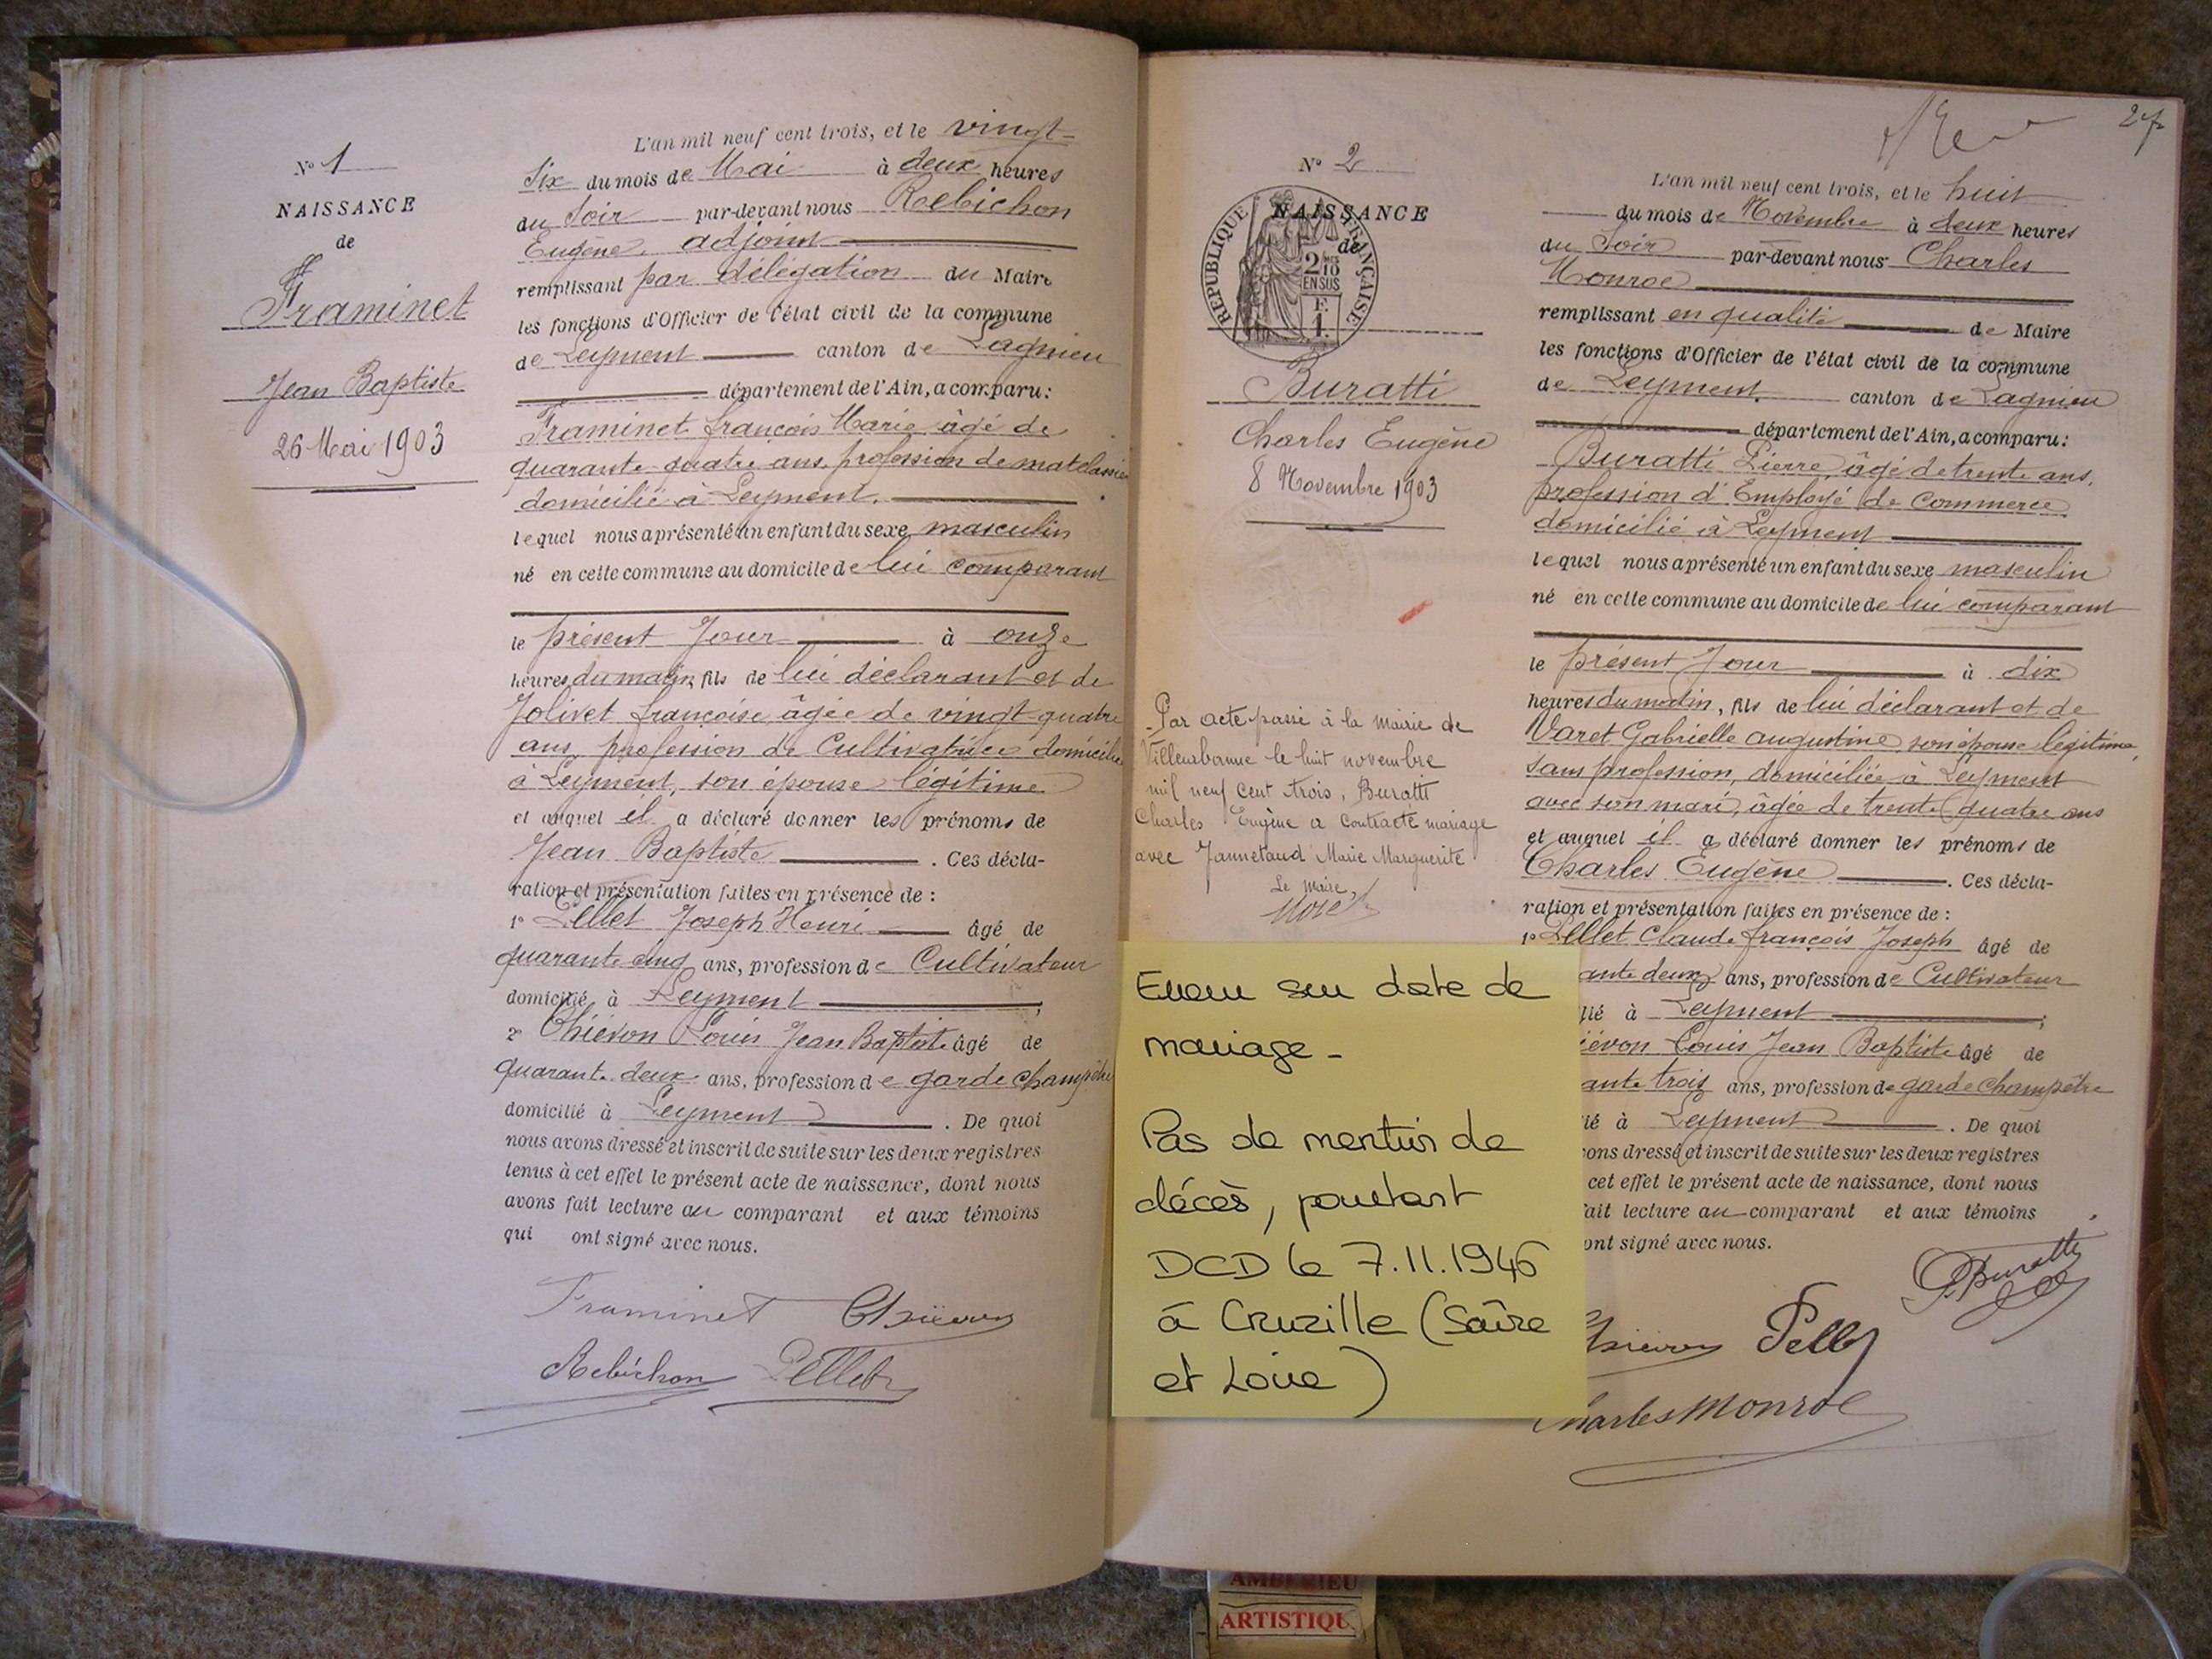 N° 1
NAISSANCE
de
Framinet
Jean Baptiste
26 Mai 1903
L'an mil neuf cent trois, et le vingt-
six du mois de Mai à deux heures
du Soir par-devant nous Rebichon
Eugène, adjoint
remplissant par délégation du Maire
les fonctions d'Officier de l'état civil de la commune
de Leyment canton de Lagnieu
département de l'Ain, a comparu:
Framinet françois Marie âgé de
quarante-quatre ans, profession de matelassier
domicilié à Leyment.
lequel nous a présenté un enfant du sexe masculin
né en cette commune au domicile de lui comparant
le présent Jour à onze
heures du matin, fils de lui déclarant et de
Jolivet françoise âgée de vingt-quatre
ans, profession de Cultivatrice domiciliée
à Leyment, son épouse légitime
et auquel il a déclaré donner les prénoms de
Jean Baptiste. Ces décla-
ration et présentation faites en présence de :
1° Pellet Joseph Henri âgé de
quarante cinq ans, profession de Cultivateur
domicilié à Leyment ;
2° Thiévon Louis Jean Baptiste âgé de
quarante deux ans, profession de garde champêtre
domicilié à Leyment. De quoi
nous avons dressé et inscrit de suite sur les deux registres
tenus à cet effet le présent acte de naissance, dont nous
avons fait lecture au comparant et aux témoins
qui ont signé avec nous.
Framinet Thiévon
Rebichon Pellet
27
N° 2
NAISSANCE
de
REPUBLIQUE FRANÇAISE
2/10
EN SUS
F.
1.
Buratti
Charles Eugène
8 Novembre 1903
Par acte passé à la mairie de
Villeurbanne le huit novembre
mil neuf cent trois, Buratti
Charles Eugène a contracté mariage
avec Jannetaud Marie Marguerite
Le Maire,
Erreur sur date de
mariage -
Pas de mention de
décès, pourtant
DCD le 7.11.1946
à Cruzille (Saône
et Loire)
L'an mil neuf cent trois, et le huit
du mois de Novembre à deux heures
du Soir par-devant nous Charles
Monroe
remplissant en qualité de Maire
les fonctions d'Officier de l'état civil de la commune
de Leyment canton de Lagnieu
département de l'Ain, a comparu:
Buratti Pierre, âgé de trente ans,
profession d'Employé de Commerce
domicilié à Leyment
lequel nous a présenté un enfant du sexe masculin
né en cette commune au domicile de lui comparant
le présent Jour à dix
heures du matin, fils de lui déclarant et de
Varet Gabrielle augustine son épouse légitime,
sans profession, domiciliée à Leyment
avec son mari, âgée de trente quatre ans
et auquel il a déclaré donner les prénoms de
Charles Eugène. Ces décla-
ration et présentation faites en présence de :
1° Pellet Claude françois Joseph âgé de
ante deux ans, profession de Cultivateur
lié à Leyment ;
iévon Louis Jean Baptiste âgé de
ante trois ans, profession de garde champêtre
ié à Leyment. De quoi
ons dressé et inscrit de suite sur les deux registres
cet effet le présent acte de naissance, dont nous
fait lecture au comparant et aux témoins
ont signé avec nous.
P. Buratti
Pellet
Charles Monroe
AMBERIEU
ARTISTIQU